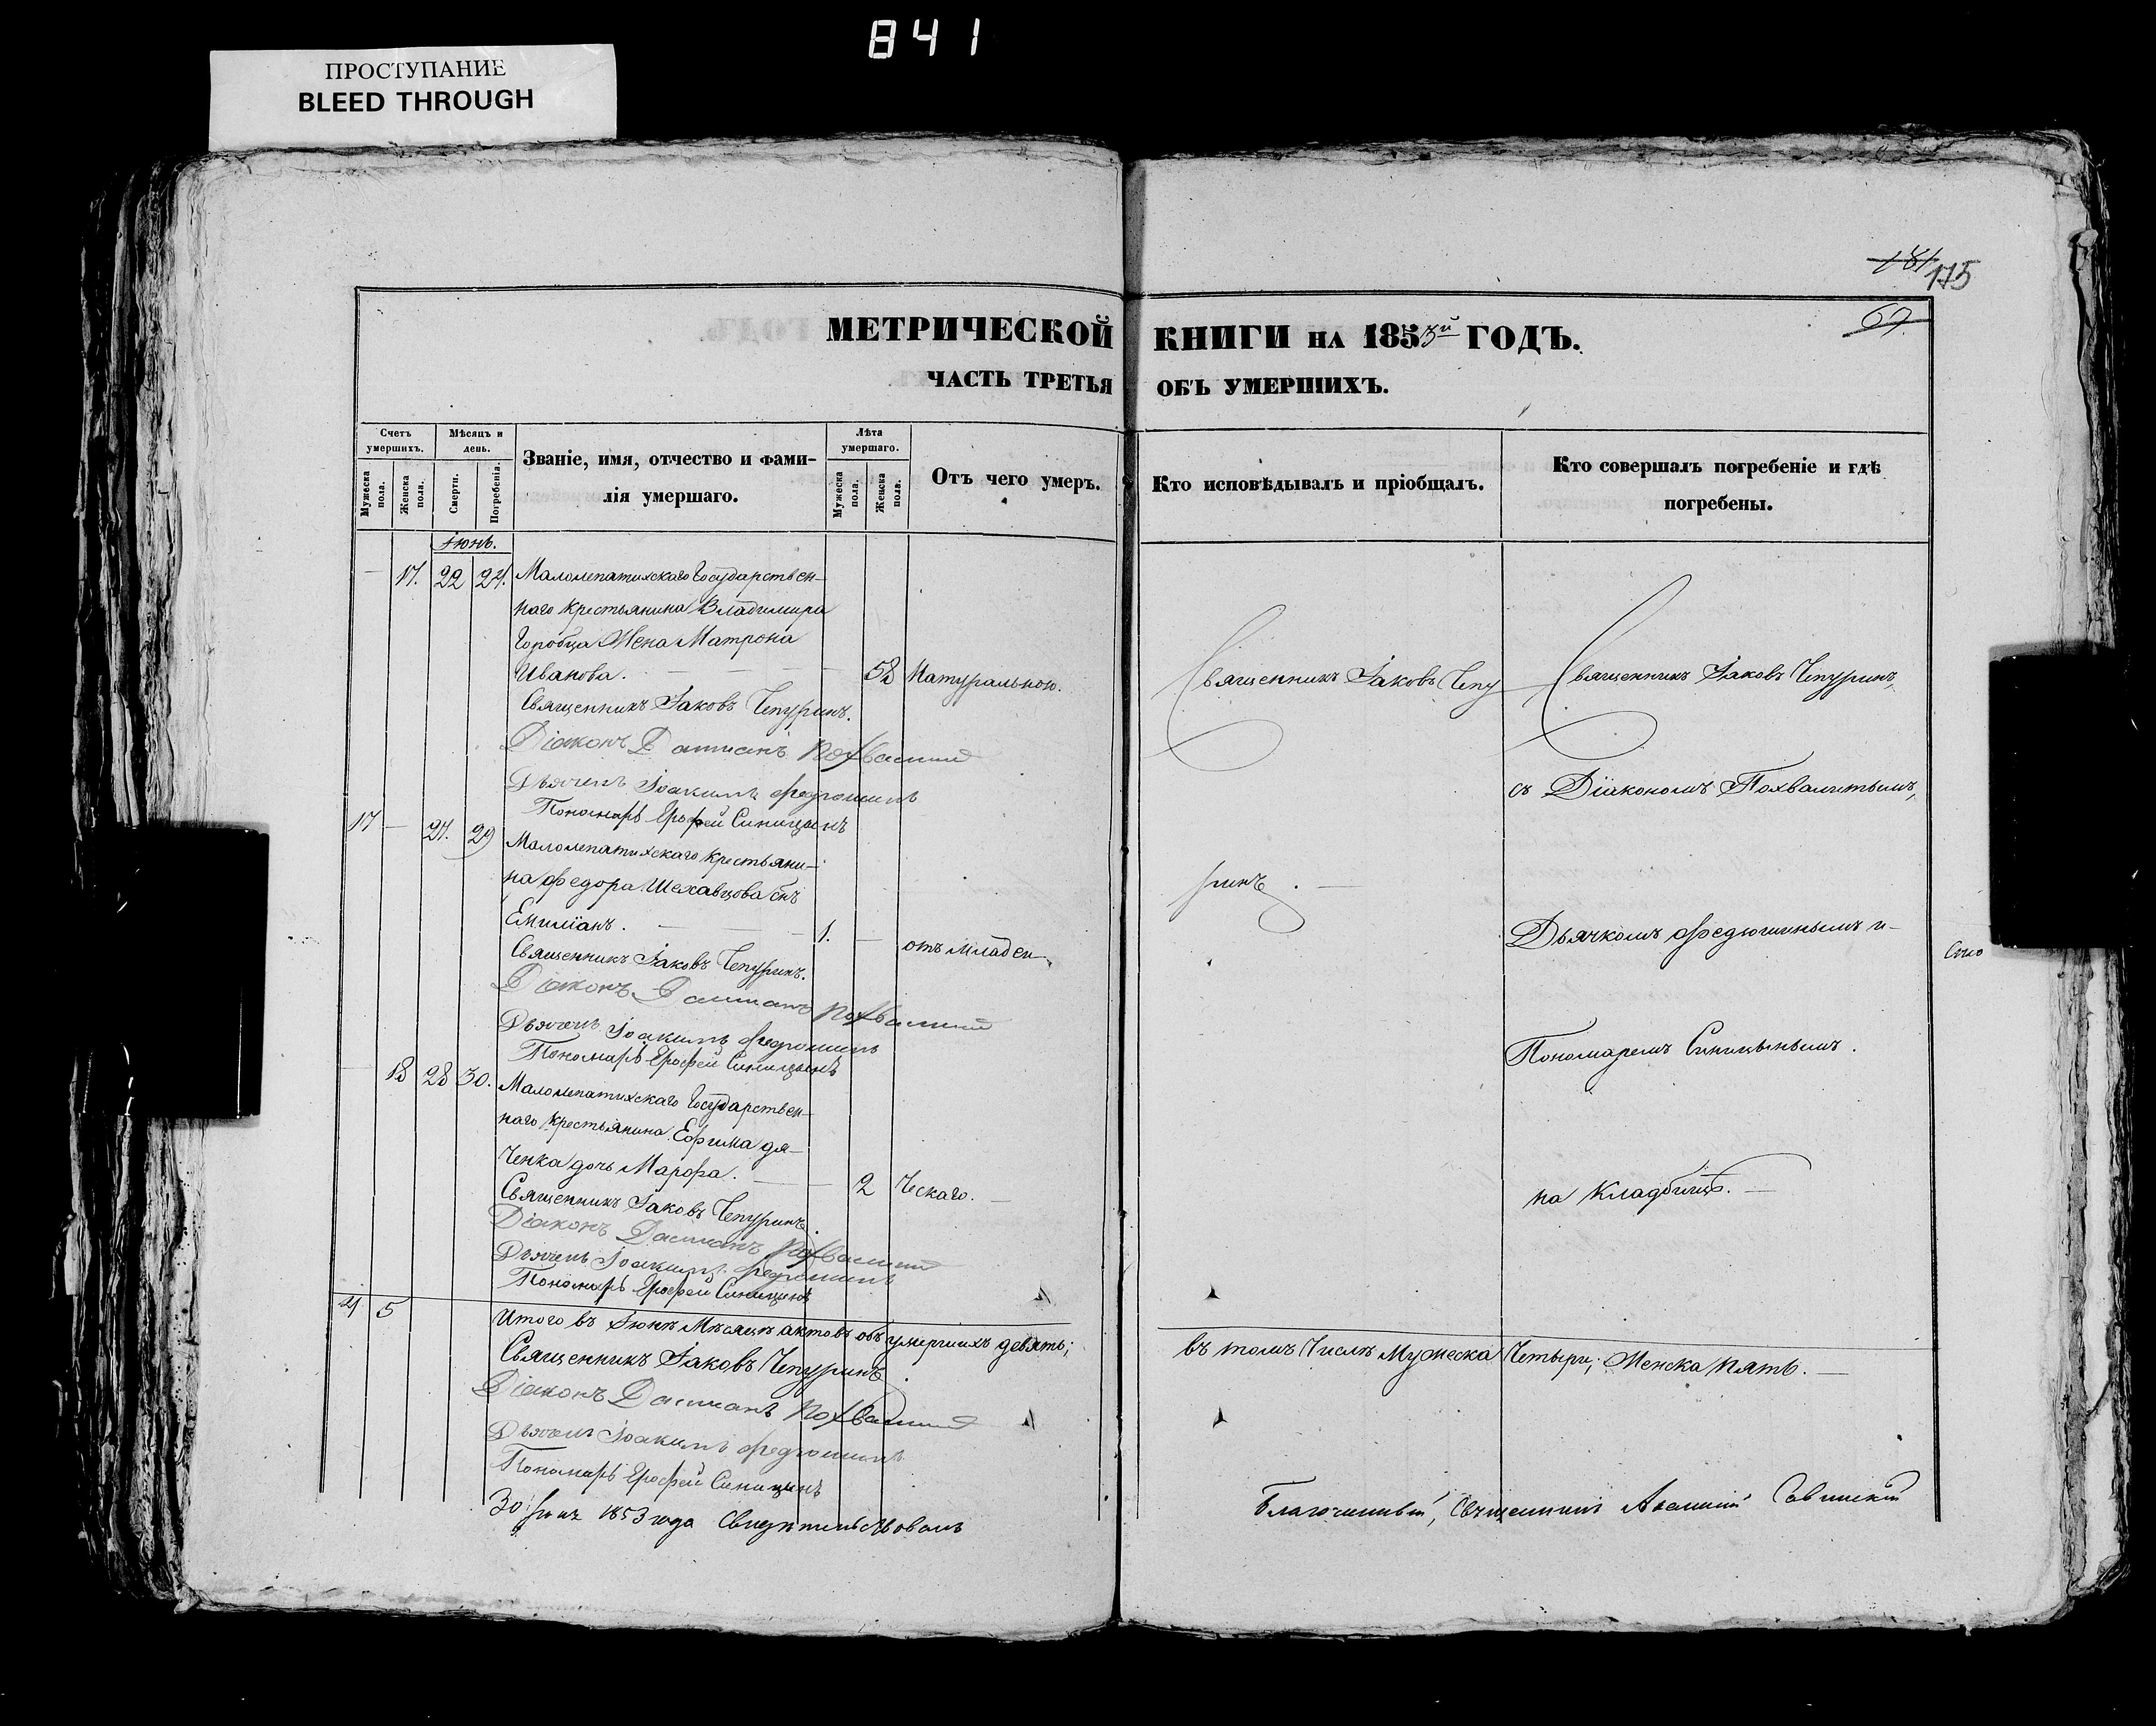 841
ПРОСТУПАНИЕ
BLEED THROUGH
181 175
67
МЕТРИЧЕСКОЙ КНИГИ НА 1853й ГОДЪ.
ЧАСТЬ ТРЕТЬЯ ОБЪ УМЕРШИХЪ.
Счетъ умершихъ.
Мужеска пола.
Женска пола.
Мѣсяцъ и день.
Смерти.
Погребенія.
Званіе, имя, отчество и фами-
лія умершаго.
Лѣта умершаго.
Мужеска пола.
Женска пола.
Отъ чего умеръ.
Кто исповѣдывалъ и пріобщалъ.
Кто совершалъ погребеніе и гдѣ
погребены.
Іюнь.
— 17. 22 24. Малолепатихскаго Государствен-
наго крестьянина Владимира
Горобца Жена Матрона
Иванова. 58 Натуральною.
Священникъ Іаковъ Чепуринъ.
Діаконъ Даміанъ Похвалитый
Дьячекъ Іоакимъ Федюшинъ
Пономарь Ерофей Синицынъ
17 — 27. 29 Малолепатихскаго крестьяни-
на Федора Шехавцова снъ
Емиліанъ. 1. — отъ младен
Священникъ Іаковъ Чепуринъ.
Діаконъ Даміанъ Похвалитый
Дьячекъ Іоакимъ Федюшинъ
Пономарь Ерофей Синицынъ
— 18 28 30. Малолепатихскаго Государствен-
наго крестьянина Ефима дя-
ченка дочь Марфа. 2 ческаго.
Священникъ Іаковъ Чепуринъ.
Діаконъ Даміанъ Похвалитый
Дьячекъ Іоакимъ Федюшинъ
Пономарь Ерофей Синицынъ
Священникъ Іаковъ Чепу
ринъ.
Священникъ Іаковъ Чепуринъ,
съ Діакономъ Похвалитымъ,
Дьячкомъ Федюшинымъ и
Пономаремъ Синицынымъ.
на Кладбищѣ.
4 5 Итого въ Іюнѣ Мѣсяцѣ актовъ объ умершихъ девять; въ томъ Числѣ Мужеска Четыри; Женска пять.
Священникъ Іаковъ Чепуринъ.
Діаконъ Даміанъ Похвалитый
Дьячекъ Іоакимъ Федюшинъ
Пономарь Ерофей Синицынъ
30 Іюня 1853 года Свидѣтельствовалъ Благочинный, Священникъ Савинскій